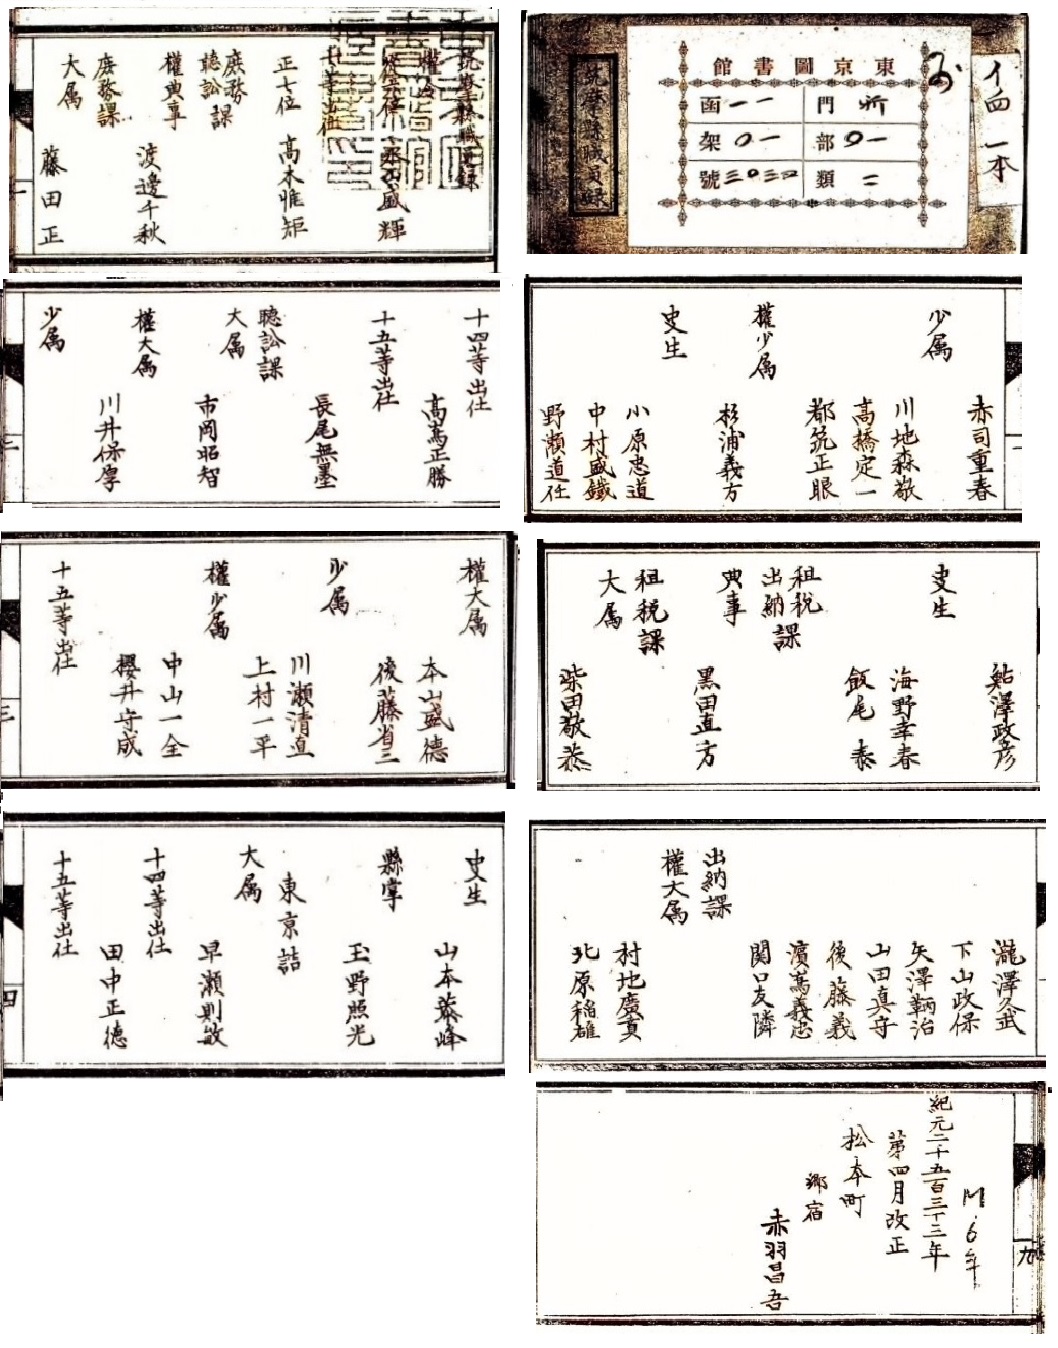 イ四一本
東京圖書館
門 斫
函 一一
部 〇一
架 〇一
類 二
號 三〇三四
筑摩縣職員録
筑摩縣職員録
權令
永山盛輝
正七位
高木惟矩
七等出仕
庶務
聽訟課
權典事
渡邊千秋
庶務課
大属
藤田正
赤司重春
少属
川地森敬
高橋定一
都筑正眼
權少属
杉浦義方
史生
小原忠道
中村盛鐵
野瀬道任
十四等出仕
高嵩正勝
十五等出仕
長尾無墨
聽訟課
大属
市岡昭智
權大属
川井保厚
少属
鮎澤政彦
史生
海野幸春
飯尾泰
租税
出納課
典事
黒田直方
租税課
大属
柴田敬恭
權大属
本山盛德
後藤省三
少属
川瀬清直
上村一平
權少属
中山一全
櫻井守成
十五等出仕
瀧澤久武
下山政保
矢澤鞆治
山田真守
後藤義
濱嵩義忠
関口友隣
出納課
權大属
村地廣真
北原稲雄
史生
山本恭峰
縣掌
玉野照光
東京詰
大属
早瀬則敏
十四等出仕
田中正德
十五等出仕
M.6年
紀元二千五百三十三年
第四月改正
松本町
郷宿
赤羽昌吾
一
二
三
四
九